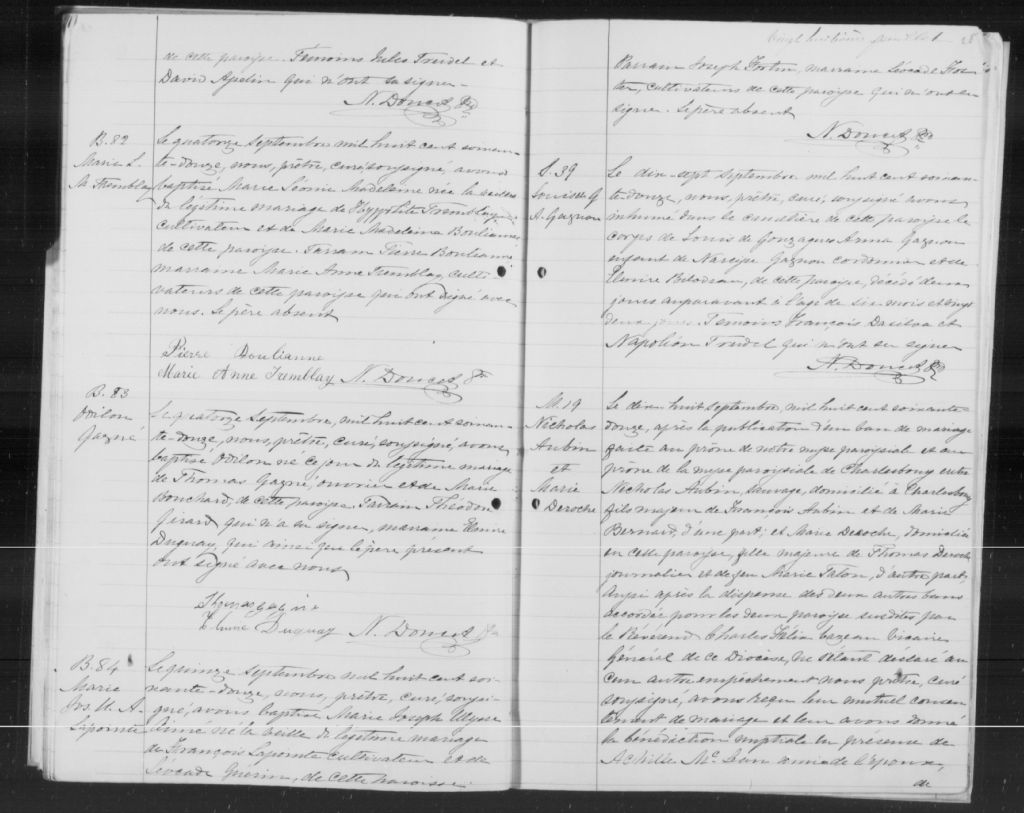 de cette paroisse. Témoins Jules Trudel et
David Asselin qui n'ont su signer.
N. Doucet Ptre
B. 82
Marie L.
M. Tremblay
Le quatorze Septembre mil huit cent soixan-
te-douze, nous, prêtre, curé, soussigné, avons
baptisé Marie Léonie Madeleine née la veille
du légitime mariage de Hyppolite Tremblay
cultivateur et de Marie Madeleine Boulianne
de cette paroisse. Parrain Pierre Boulianne
marraine Marie Anne Tremblay, culti-
vateurs de cette paroisse qui ont signé avec
nous. Le père absent
Pierre Boulianne
Marie Anne Tremblay N. Doucet Ptre
B. 83
Odilon
Gagné
Le quatorze Septembre, mil huit cent soixan-
te-douze, nous, prêtre, curé, soussigné, avons
baptisé Odilon né ce jour du légitime mariage
de Thomas Gagné, ouvrier et de Marie
Bouchard, de cette paroisse. Parrain Théodore
Girard qui n'a su signer, marraine
Duguay, qui ainsi que le père présent
ont signé avec nous
Thomas gagné
Duguay N. Doucet Ptre
B. 84
Marie
Jos. U. A.
Lapointe
Le quinze Septembre mil huit cent soi-
xante-douze, nous, prêtre, curé, soussi-
gné, avons baptisé Marie Joseph Ulysse
Aimé né la veille du légitime mariage
de François Lapointe cultivateur et de
Léocadie Guérin, de cette paroisse.
Vingt huitième feuillet 28
Parrain Joseph Fortin, marraine Léocadie
cultivateurs de cette paroisse qui n'ont su
signer. Le père absent
N. Doucet Ptre
S. 39
Louis de G.
A. Gagnon
Le dix-sept Septembre mil huit cent soixan-
te-douze, nous, prêtre, curé, soussigné avons
inhumé dans le cimetière de cette paroisse le
corps de Louis de Gonzagues Anna Gagnon
enfant de Narcisse Gagnon cordonnier et de
Elmire Bilodeau, de cette paroisse, décédé deux
jours auparavant à l'age de six mois et vingt
deux jours. Témoins François Dasilva et
Napoléon Trudel qui n'ont su signer
N. Doucet Ptre
M. 19
Nicholas
Aubin
et
Marie
Deroche
Le dix huit Septembre, mil huit cent soixante
douze, après la publication d'un ban de mariage
faite au prône de notre messe paroissiale et au
prône de la messe paroissiale de Charlesbourg entre
Nicholas Aubin, sauvage, domicilié à Charlesbourg
fils majeur de François Aubin et de Marie
Bernard, d'une part; et Marie Deroche, domiciliée
en cette paroisse, fille majeure de Thomas Deroche
journalier et de feu Marie Talon, d'autre part;
Aussi après la dispense des deux autres bans
accordée pour les deux paroisses susdites par
le Révérend Charles Félix Cazeau Vicaire
Général de ce Diocèse, ne s'étant déclaré au-
cun autre empêchement nous prêtre, curé
soussigné, avons reçu leur mutuel consen-
tement de mariage et leur avons donné
la bénédiction nuptiale en présence de
Achille Mc Lean ami de l'époux,
de